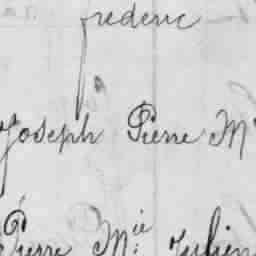 frederic
Joseph Pierre M
Pierre Mie Julien